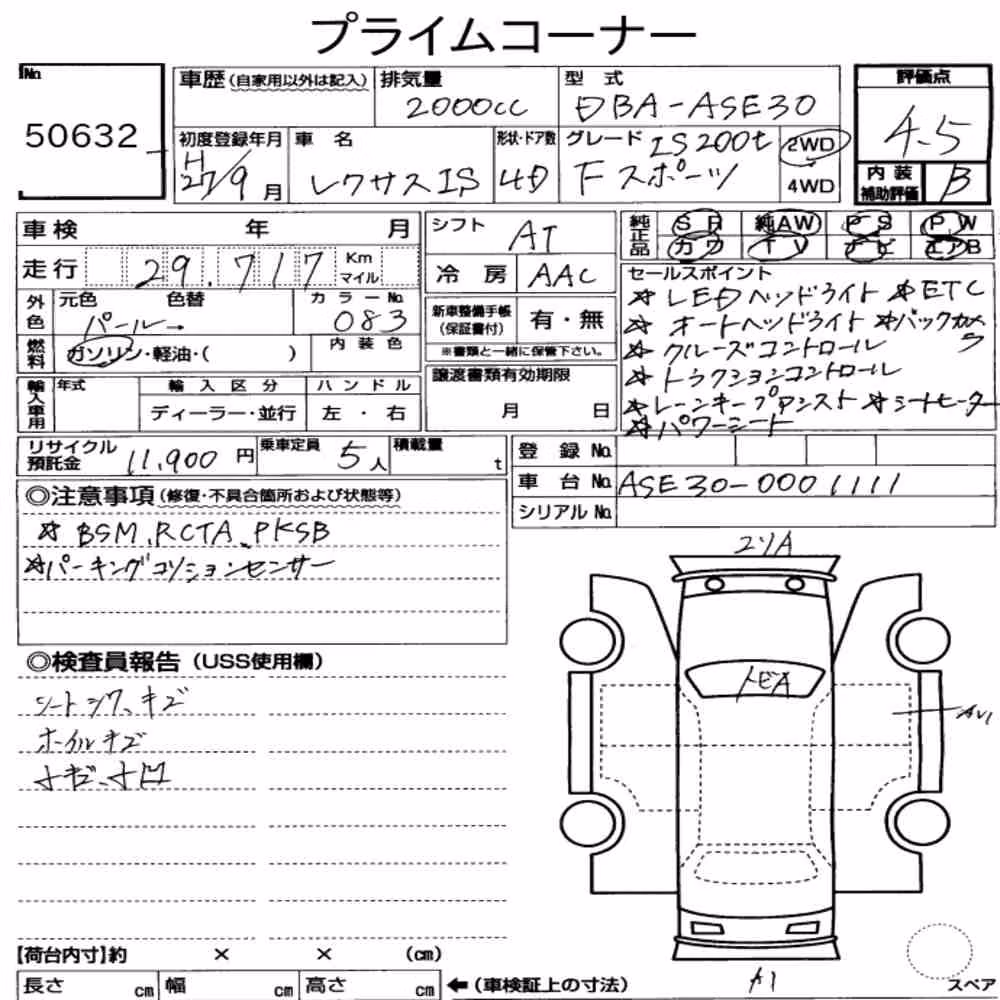 プライムコーナー
No.
50632
車歴(自家用以外は記入)
排気量
2000cc
型 式
DBA-ASE30
初度登録年月
H
27/9月
車 名
レクサスIS
形状・ドア数
4D
グレード
IS200t
Fスポーツ
2WD
4WD
評価点
4.5
内装
補助評価
B
車検 年 月
走行 29.717 Km
マイル
シフト AT
冷 房 AAC
純正品
SR 純AW PS PW
カワ TV ナビ エアB
外色
元色 色替
パール→
カラーNo.
083
燃料
ガソリン・軽油・( )
内装色
新車整備手帳
(保証書付)
有・無
※書類と一緒に保管下さい。
輸入車用
年式
輸入区分
ディーラー・並行
ハンドル
左・右
譲渡書類有効期限
月 日
セールスポイント
☆ LEDヘッドライト ☆ETC
☆ オートヘッドライト ☆バックカメラ
☆ クルーズコントロール
☆ トラクションコントロール
☆レーンキープアシスト ☆シートヒーター
☆パワーシート
リサイクル
預託金
11,900 円
乗車定員
5人
積載量
t
登 録 No.
車 台 No. ASE30-0001111
シリアルNo.
◎注意事項(修復・不具合箇所および状態等)
☆ BSM、RCTA、PKSB
☆パーキングコリションセンサー
◎検査員報告(USS使用欄)
シートシワ、キズ
ホイルキズ
小キズ、小凹
コソA
トビA
A1
【荷台内寸】約 × × (cm)
長さ cm 幅 cm 高さ cm
←(車検証上の寸法)
スペア